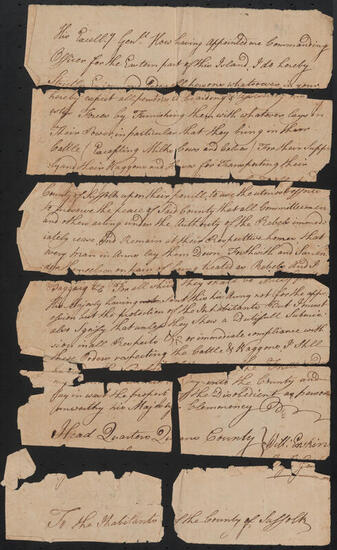 His Excell.y Gen.l How having Appointed me Commanding
Officer for the Eastern part of this Island, I do hereby
all persons whatsoever in your
hereby expect all persons
with Forces by Furnishing them with whatever lays in
Their Power in particular that they bring in their
Cattle (Excepting Milch Cows and Calves) For their Supp
ly and their Waggons and for Transporting their
County of Suffolk upon their peril, to use the utmost efforts
to preserve the peace of said County that all Committeemen
and others acting under the Authority of the Rebels immed
iately cease and Remain at their Respective homes that
every man in Arms lay them Down Forthwith and
themselves on pain of being treated as Rebels and I
Baggage &c For all which they shall be
His Majesty having Sent this his Army not for the oppr
ession but the protection of the Inhabitants But I must
also Signify that unless they Shew a Dutifull Submis
sion in all Respects & an immediate compliance with
these Orders respecting the Cattle & Waggons I Shall
into the County and
lay in waste the property of the Disobedient as persons
unworthy his Majesty's Clemency
Head Quarters County
Will: Erskine
To the Inhabitants of the County of Suffolk